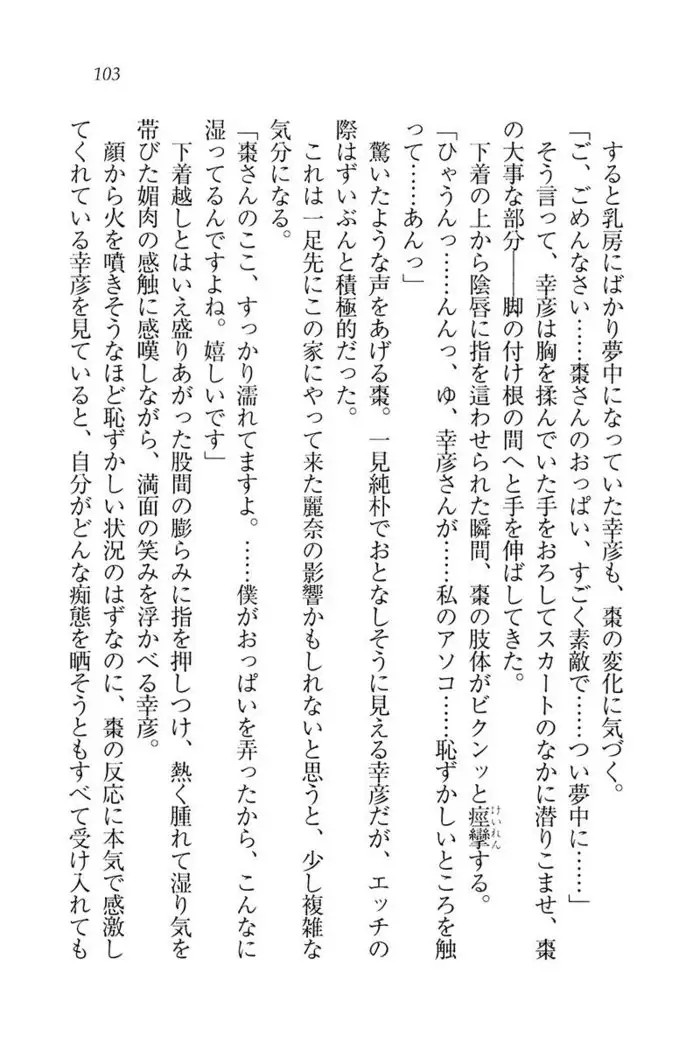 103
すると乳房にばかり夢中になっていた幸彦も、棗の変化に気づく。
「ご、ごめんなさい……棗さんのおっぱい、すごく素敵で……つい夢中に……」
そう言って、幸彦は胸を揉んでいた手をおろしてスカートのなかに潜りこませ、棗
の大事な部分――脚の付け根の間へと手を伸ばしてきた。
下着の上から陰唇に指を這わせられた瞬間、棗の肢体がビクンッと痙攣する。
けいれん
「ひゃうんっ……んんっ、ゆ、幸彦さんが……私のアソコ……恥ずかしいところを触
って……あんっ」
驚いたような声をあげる棗。一見純朴でおとなしそうに見える幸彦だが、エッチの
際はずいぶんと積極的だった。
これは一足先にこの家にやって来た麗奈の影響かもしれないと思うと、少し複雑な
気分になる。
「棗さんのここ、すっかり濡れてますよ。……僕がおっぱいを弄ったから、こんなに
湿ってるんですよね。嬉しいです」
下着越しとはいえ盛りあがった股間の膨らみに指を押しつけ、熱く腫れて湿り気を
帯びた媚肉の感触に感嘆しながら、満面の笑みを浮かべる幸彦。
顔から火を噴きそうなほど恥ずかしい状況のはずなのに、棗の反応に本気で感激し
てくれている幸彦を見ていると、自分がどんな痴態を晒そうともすべて受け入れても